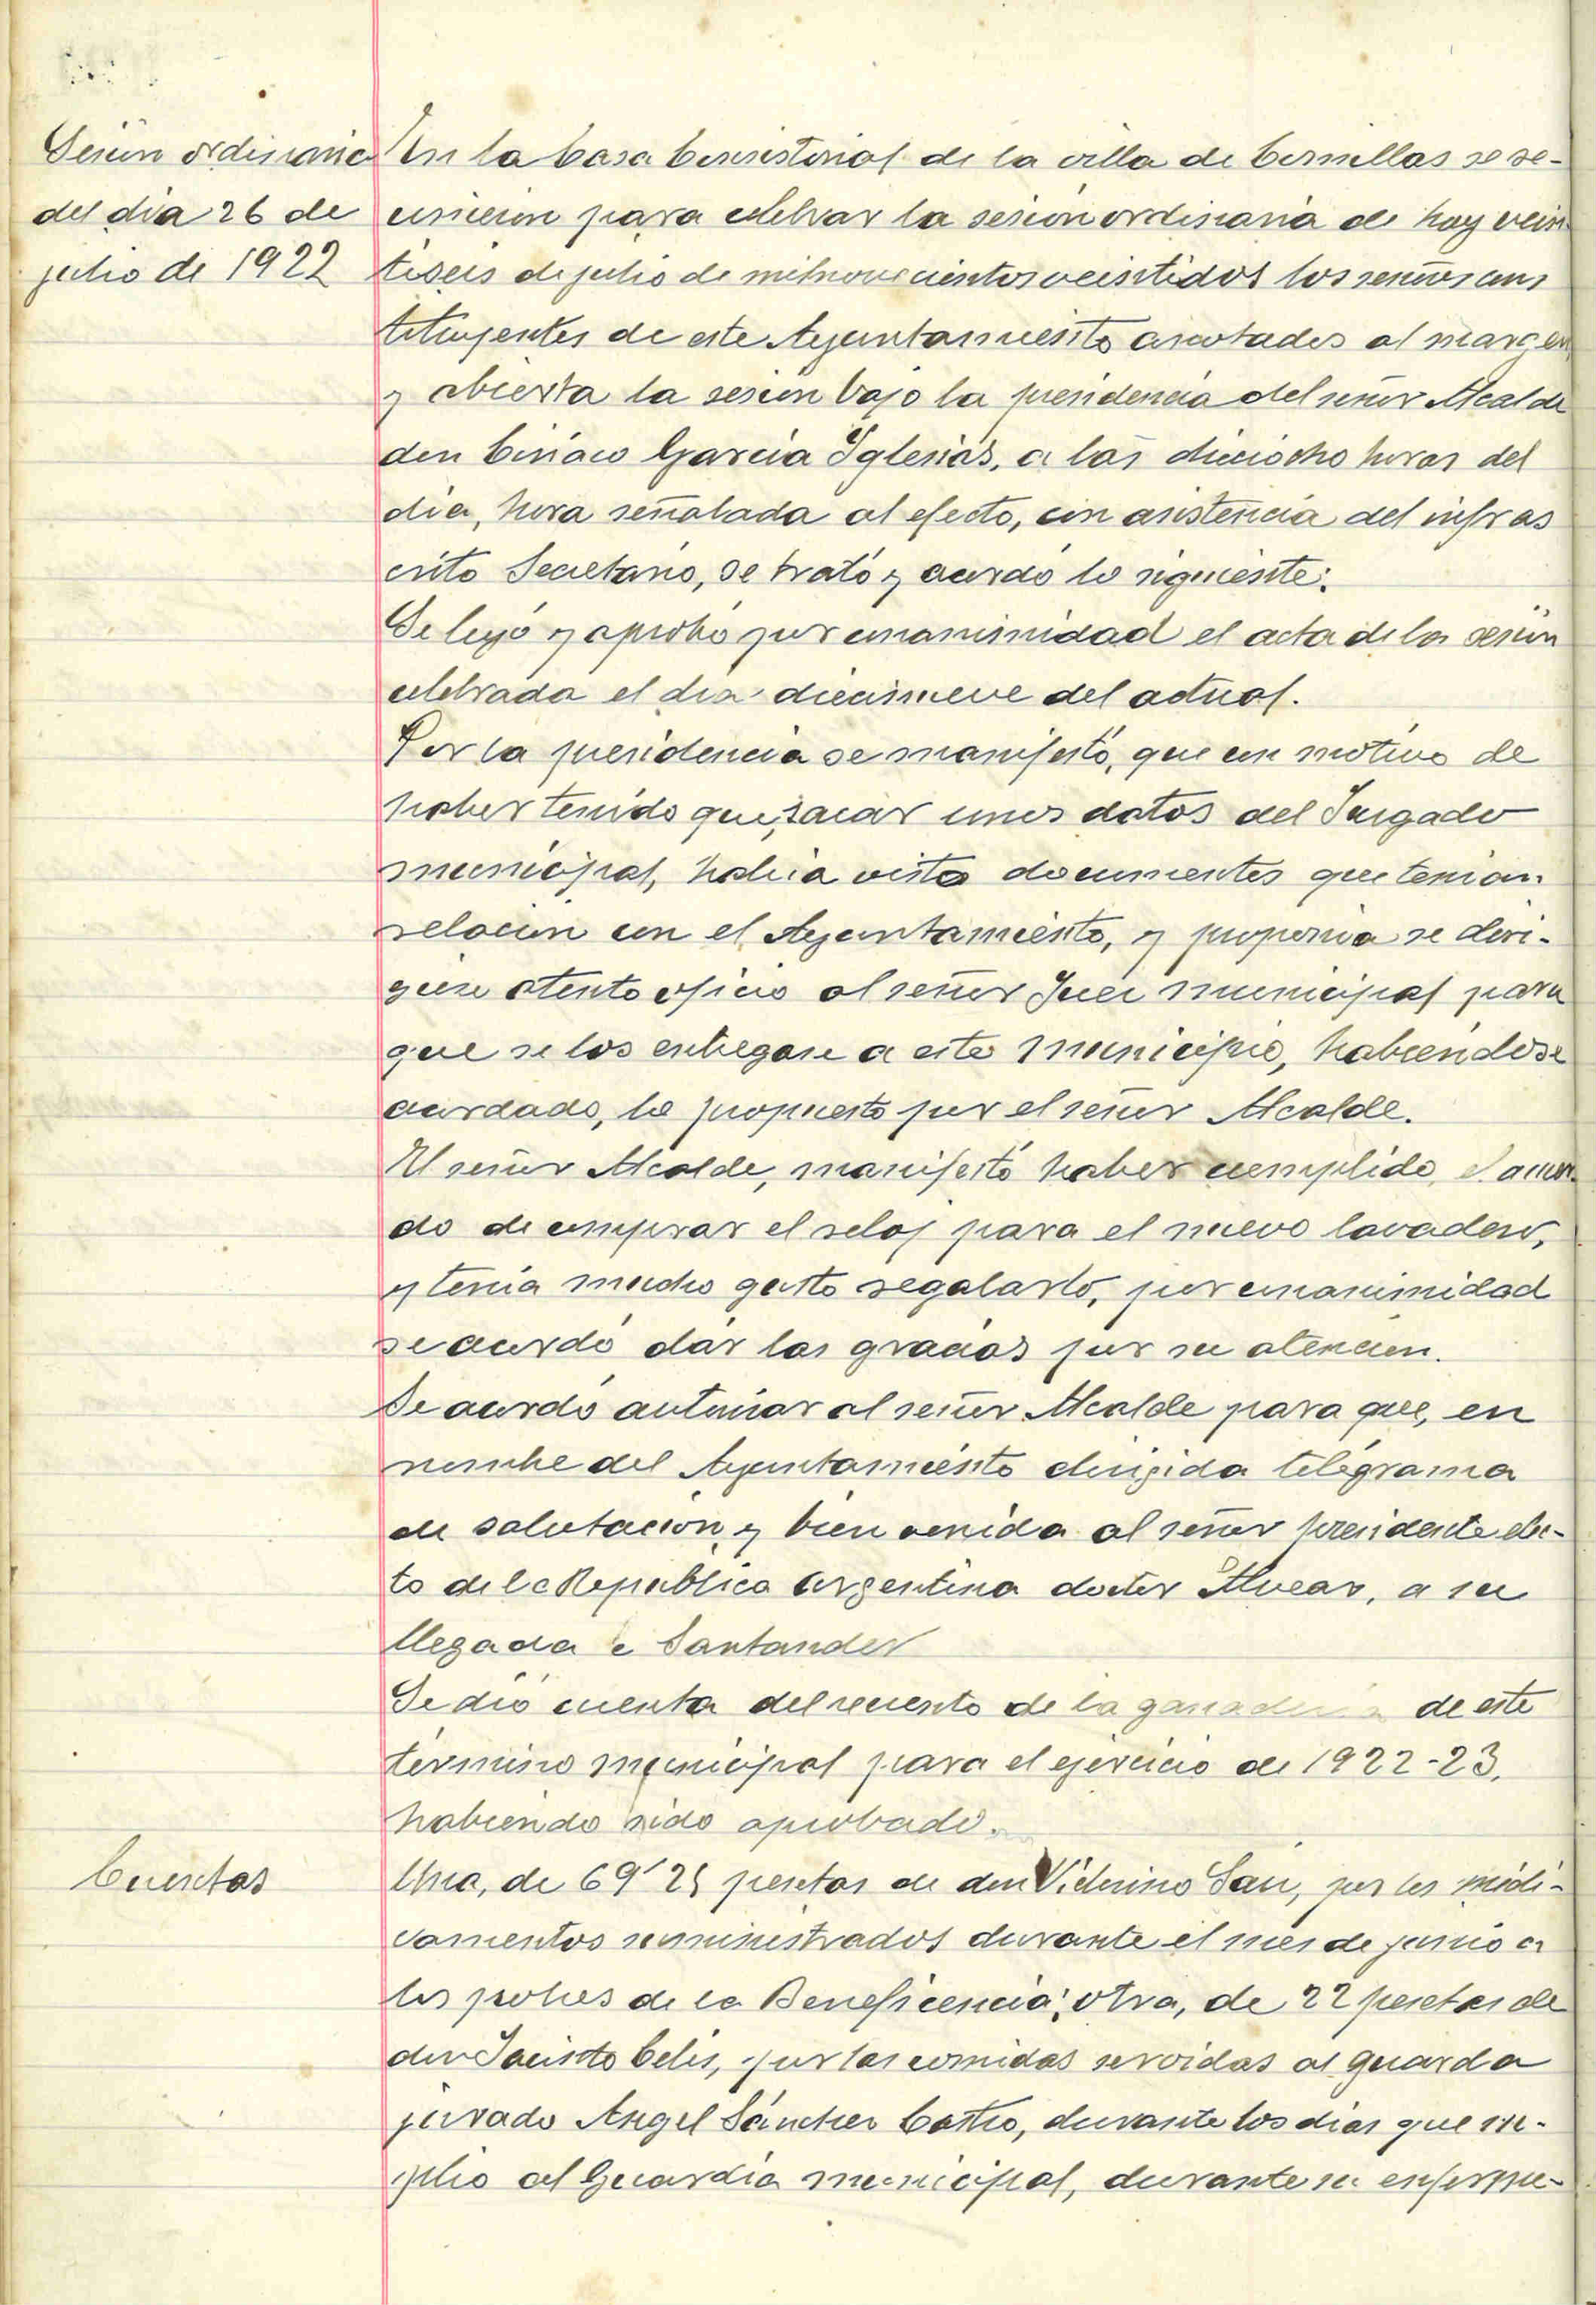 Sesión ordinaria
del día 26 de
julio de 1922
En la Casa Consistorial de la villa de Comillas se re-
unieron para celebrar la sesión ordinaria de hoy vein
tiseis de julio de mil novecientos veintidos los señores cons
tituyentes de este Ayuntamiento anotados al margen
y abierta la sesión bajo la presidencia del señor Alcalde
don Ciriaco García Iglesias, a las dieciocho horas del
día, hora señalada al efecto, con asistencia del infras
crito Secretario, se trató y acordó lo siguiente:
Se leyó y aprobó por unanimidad el acta de la sesión
celebrada el día diecinueve del actual.
Por la presidencia se manifestó, que con motivo de
haber tenido que sacar unos datos del Juzgado
municipal, había visto documentos que tenian
relación con el Ayuntamiento, y proponia se diri-
giese atento oficio al señor Juez municipal para
que se los entregase a este Municipio, habiendose
acordado, lo propuesto por el señor Alcalde.
El señor Alcalde, manifestó haber cumplido, el acuer-
do de comprar el reloj para el nuevo lavadero,
y tenia mucho gusto regalarlo, por unanimidad
se acordó dar las gracias por su atención.
Se acordó autorizar al señor Alcalde para que, en
nombre del Ayuntamiento dirigida telégrama
de salutación y bien venida al señor presidente elec-
to de la Republica Argentina doctor Alvear, a su
llegada a Santander
Se dió cuenta del recuento de la ganadería de este
término municipal para el ejercicio de 1922-23,
habiendo sido aprobado.
Cuentas
Una, de 69'25 pesetas de don Victorino San, por los medi-
camentos suministrados durante el mes de junio a
los pobres de la Beneficencia; otra, de 22 pesetas de
don Jacinto Celis, por las comidas servidas al guarda
jurado Angel Sánchez Castro, durante los días que su-
plió al Guardia municipal, durante su enferme-